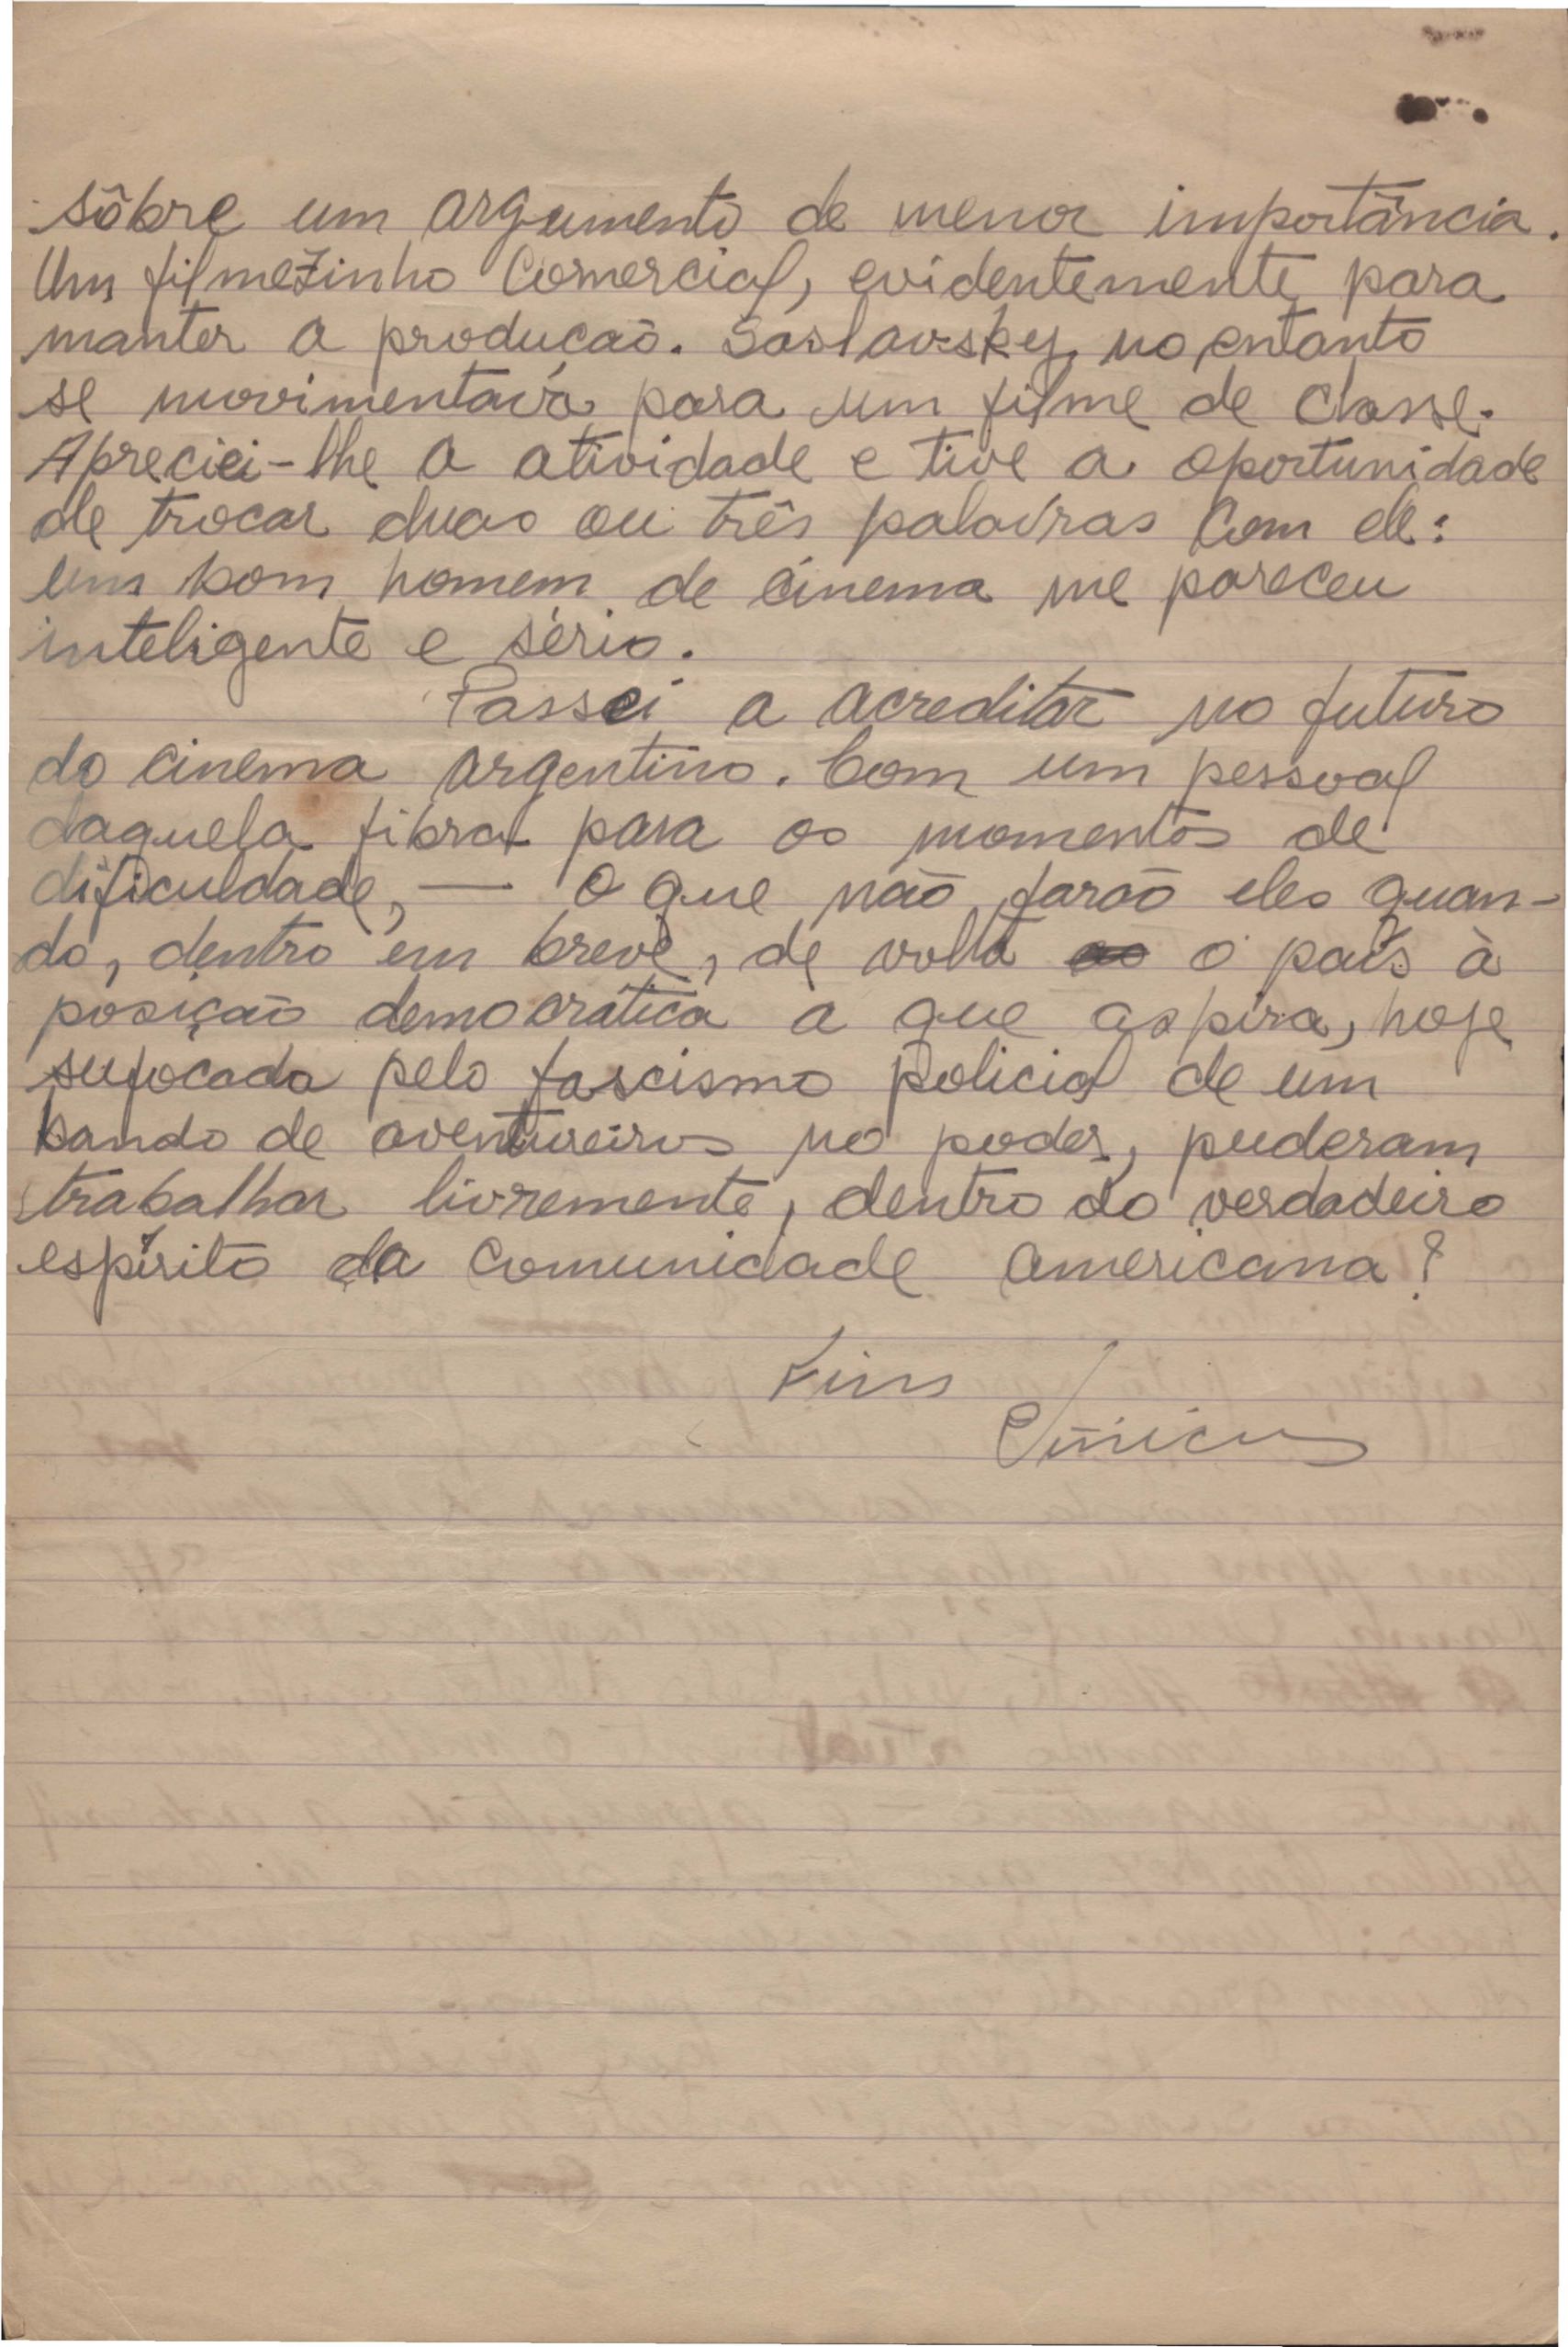 sôbre um argumento de menor importância.
Um filmezinho comercial, evidentemente para
manter a produção. Saslavsky, no entanto
se movimentava para um filme de classe.
Apreciei-lhe a atividade e tive a oportunidade
de trocar duas ou três palavras com ele:
um bom homem de cinema me pareceu
inteligente e sério.
Passei a acreditar no futuro
do cinema argentino. Com um pessoal
daquela fibra para os momentos de
dificuldade, — o que não farão eles quan-
do, dentro em breve, de volta o país à
posição democrática a que aspira, hoje
sufocada pelo fascismo policial de um
bando de aventureiros no poder, puderam
trabalhar livremente, dentro do verdadeiro
espírito da comunidade americana?
Fim
Vinicius